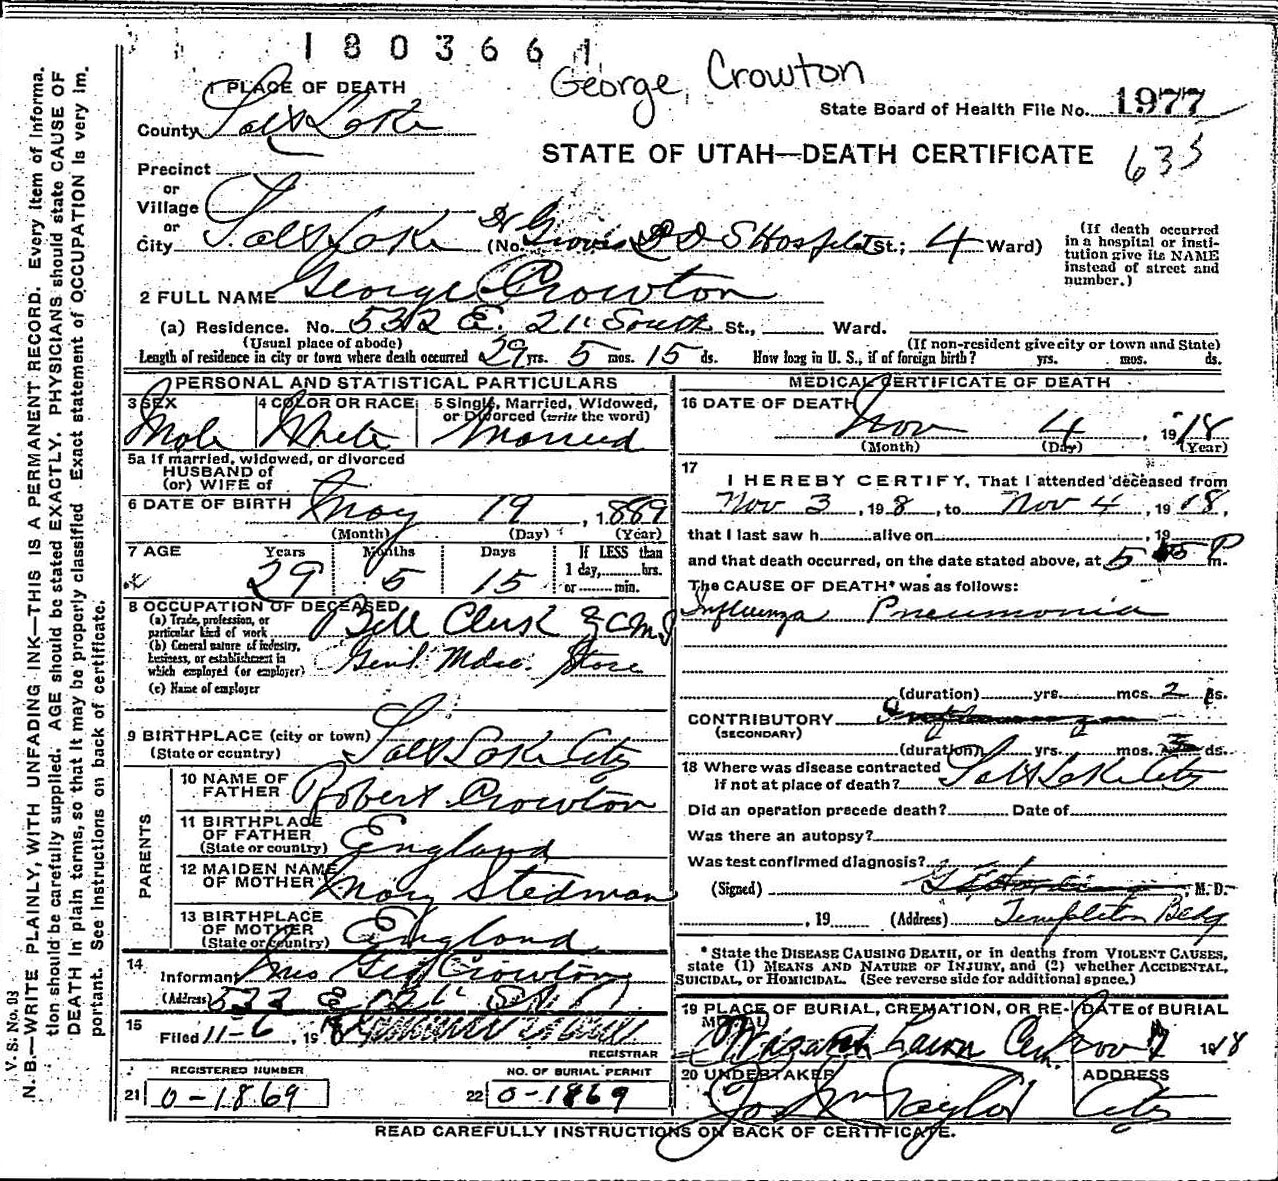 1803661
George Crowton
1 PLACE OF DEATH
State Board of Health File No. 1977
County Salt Lake
STATE OF UTAH—DEATH CERTIFICATE 635
Precinct
or
Village
or
City Salt Lake (No. Dr Groves L D S Hospital St.; 4 Ward)
(If death occurred in a hospital or institution give its NAME instead of street and number.)
2 FULL NAME George Crowton
(a) Residence. No. 532 E. 21 South St., Ward.
(Usual place of abode) (If non-resident give city or town and State)
Length of residence in city or town where death occurred 29 yrs. 5 mos. 15 ds. How long in U. S., if of foreign birth? yrs. mos. ds.
PERSONAL AND STATISTICAL PARTICULARS
3 SEX Male
4 COLOR OR RACE White
5 Single, Married, Widowed, or Divorced (write the word) Married
5a If married, widowed, or divorced
HUSBAND of
(or) WIFE of
6 DATE OF BIRTH May 19, 1889
(Month) (Day) (Year)
7 AGE Years Months Days If LESS than
1 day, hrs.
or min.
29 5 15
8 OCCUPATION OF DECEASED
(a) Trade, profession, or particular kind of work Bill Clerk Z C M I
(b) General nature of industry, business, or establishment in which employed (or employer) Genl. Mdse. Store
(c) Name of employer
9 BIRTHPLACE (city or town) Salt Lake City
(State or country)
PARENTS
10 NAME OF FATHER Robert Crowton
11 BIRTHPLACE OF FATHER (State or country) England
12 MAIDEN NAME OF MOTHER Mary Stedman
13 BIRTHPLACE OF MOTHER (State or country) England
14 Informant Mrs Geo Crowton
(Address) 532 E 21 So
15 Filed 11-6, 19
REGISTRAR
REGISTERED NUMBER NO. OF BURIAL PERMIT
21 0-1869 22 0-1869
MEDICAL CERTIFICATE OF DEATH
16 DATE OF DEATH
Nov 4, 1918
(Month) (Day) (Year)
17 I HEREBY CERTIFY, That I attended deceased from
Nov 3, 198, to Nov 4, 1918,
that I last saw h alive on , 19
and that death occurred, on the date stated above, at 5 15 P m.
The CAUSE OF DEATH* was as follows:
Influenza Pneumonia
(duration) yrs. mos. 2 ds.
CONTRIBUTORY
(SECONDARY)
(duration) yrs. mos. ds.
18 Where was disease contracted
If not at place of death? Salt Lake City
Did an operation precede death? Date of
Was there an autopsy?
Was test confirmed diagnosis?
(Signed) , M. D.
, 19 (Address) Templeton Bldg
* State the DISEASE CAUSING DEATH, or in deaths from VIOLENT CAUSES,
state (1) MEANS AND NATURE OF INJURY, and (2) whether ACCIDENTAL,
SUICIDAL, or HOMICIDAL. (See reverse side for additional space.)
19 PLACE OF BURIAL, CREMATION, OR RE- DATE of BURIAL
MOVAL
Wasatch Lawn Cem. Nov 7 1918
20 UNDERTAKER ADDRESS
Jos Wm Taylor City
READ CAREFULLY INSTRUCTIONS ON BACK OF CERTIFICATE.
V. S. No. 03
N. B.—WRITE PLAINLY, WITH UNFADING INK—THIS IS A PERMANENT RECORD. Every item of informa-
tion should be carefully supplied. AGE should be stated EXACTLY. PHYSICIANS should state CAUSE OF
DEATH in plain terms, so that it may be properly classified. Exact statement of OCCUPATION is very im-
portant. See instructions on back of certificate.